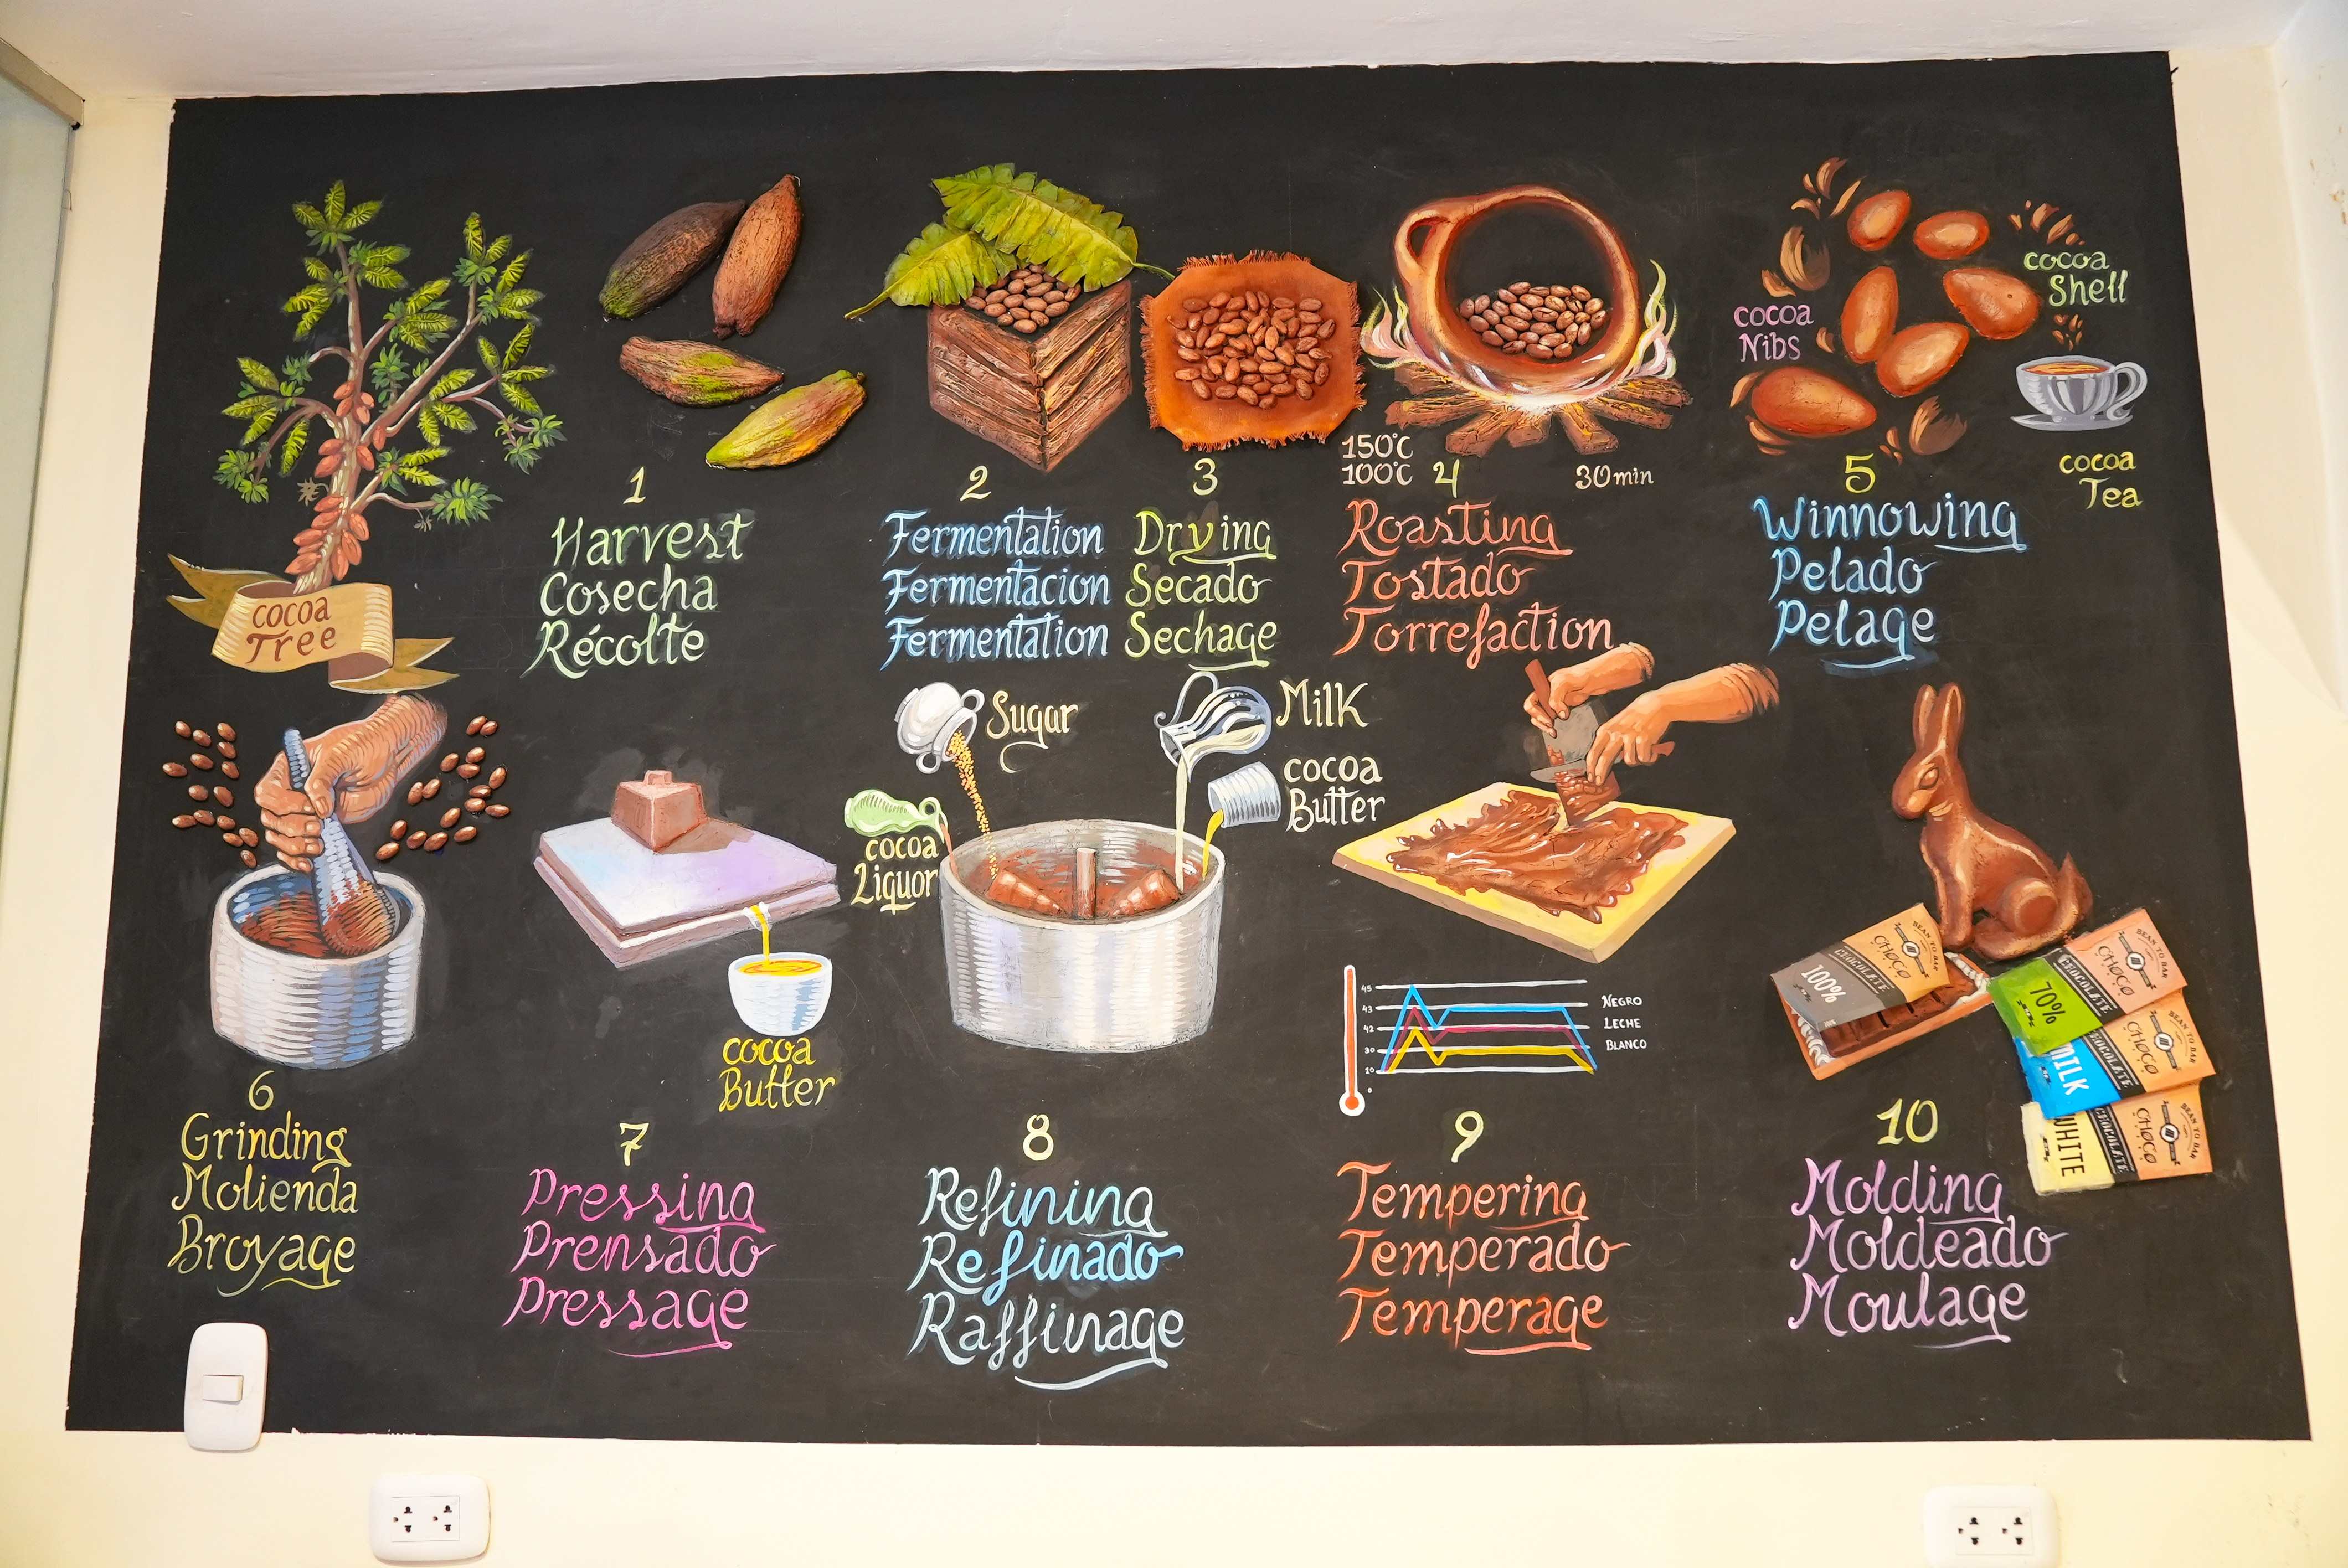 cocoa
Tree
1
Harvest
Cosecha
Récolte
2
Fermentation
Fermentacion
Fermentation
3
Drying
Secado
Sechage
150°C
100°C
4
30min
Roasting
Tostado
Torrefaction
cocoa
Nibs
cocoa
Shell
cocoa
Tea
5
Winnowing
Pelado
Pelage
6
Grinding
Molienda
Broyage
cocoa
Butter
7
Pressing
Prensado
Pressage
Sugar
Milk
cocoa
Butter
cocoa
Liquor
8
Refining
Refinado
Raffinage
45
43
42
30
10
NEGRO
LECHE
BLANCO
9
Tempering
Temperado
Temperage
100%
CHOCOLATE
CHOCO
BEAN TO BAR
70%
CHOCOLATE
CHOCO
BEAN TO BAR
MILK
CHOCOLATE
CHOCO
BEAN TO BAR
WHITE
CHOCOLATE
CHOCO
BEAN TO BAR
10
Molding
Moldeado
Moulage